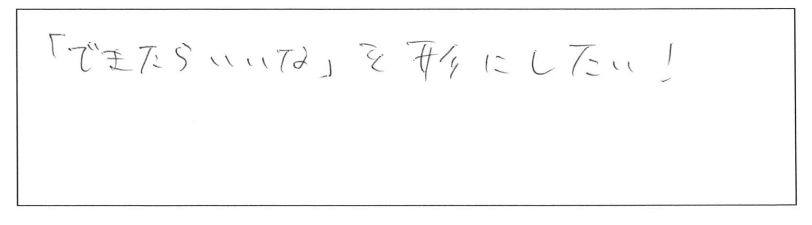 「できたらいいな」を形にしたい!